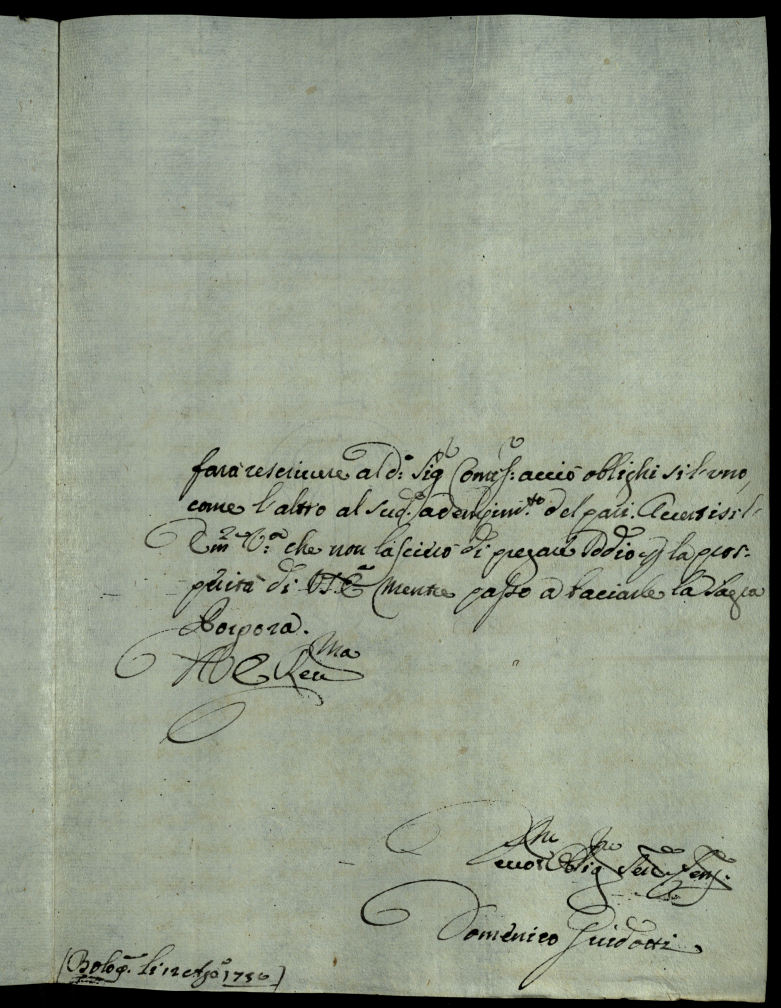 farà rescrivere al d.º Sig.r Comiss: acciò oblighi sì l'uno,
come l'altro al sud.º adempim.to del pari. Accertisi l'
Em.za V.ra che non lascierò di pregare Iddio p la pros-
perità di V.E. mentre passo a baciarle la Sagra
Porpora.
V E Rev.ma
Oblig.mo
Domenico Guidotti
(Bolog.a li 12 Ag.o 1756)